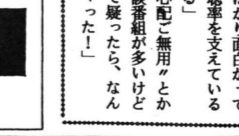 ばかり面白がって
聴率を支えている
る」
心配ご無用〟とか
談番組が多いけど
で疑ったら、なん
った！」